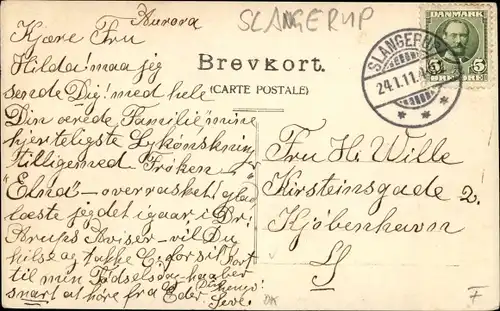 Aurora
SLANGERUP
Kjære Fru
Hilda! maa jeg
sende Dig! med hele
Din ærede Familie, mine
hjerteligste Lykønskning
tilligemed Frøken
"Elna" – overrasket! glad
læste jeg det igaar i Dr.
Aviser – vil Du
hilse og takke C. for sit Kort
til min Fødselsdag – haaber
snart at høre fra Eder.
Brevkort.
(CARTE POSTALE)
SLANGERUP
24.1.11.4
DANMARK
5 5
ØRE
Fru H. Wille
Kirsteinsgade 2.
Kjøbenhavn
DK